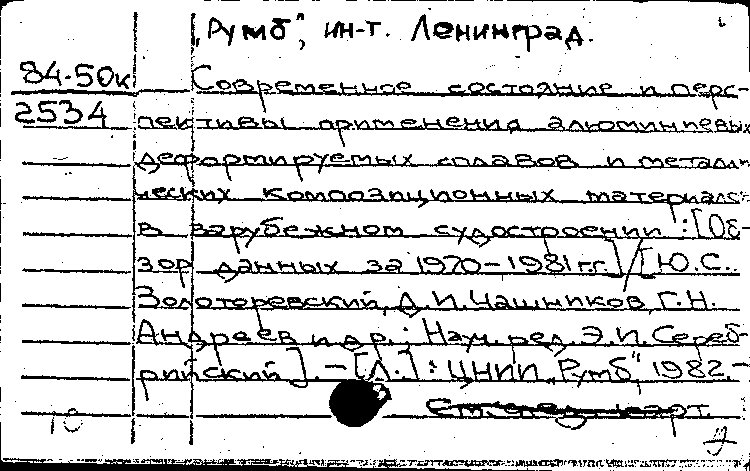 „Румб", ин-т. Ленинград.
84-50к Современное состояние и перс-
2534 пективы применения алюминиевых
деформируемых сплавов и металли
ческих композиционных материалов
в зарубежном судостроении : [Об-
зор данных за 1970-1981 гг.] / [Ю.С.
Золоторевский, Д.И. Чашников, Г.Н.
Андраев и др.; Науч. ред. Э.И. Сереб-
рийский]. - [Л.] : ЦНИИ „Румб", 1982.-
См. след. карт.